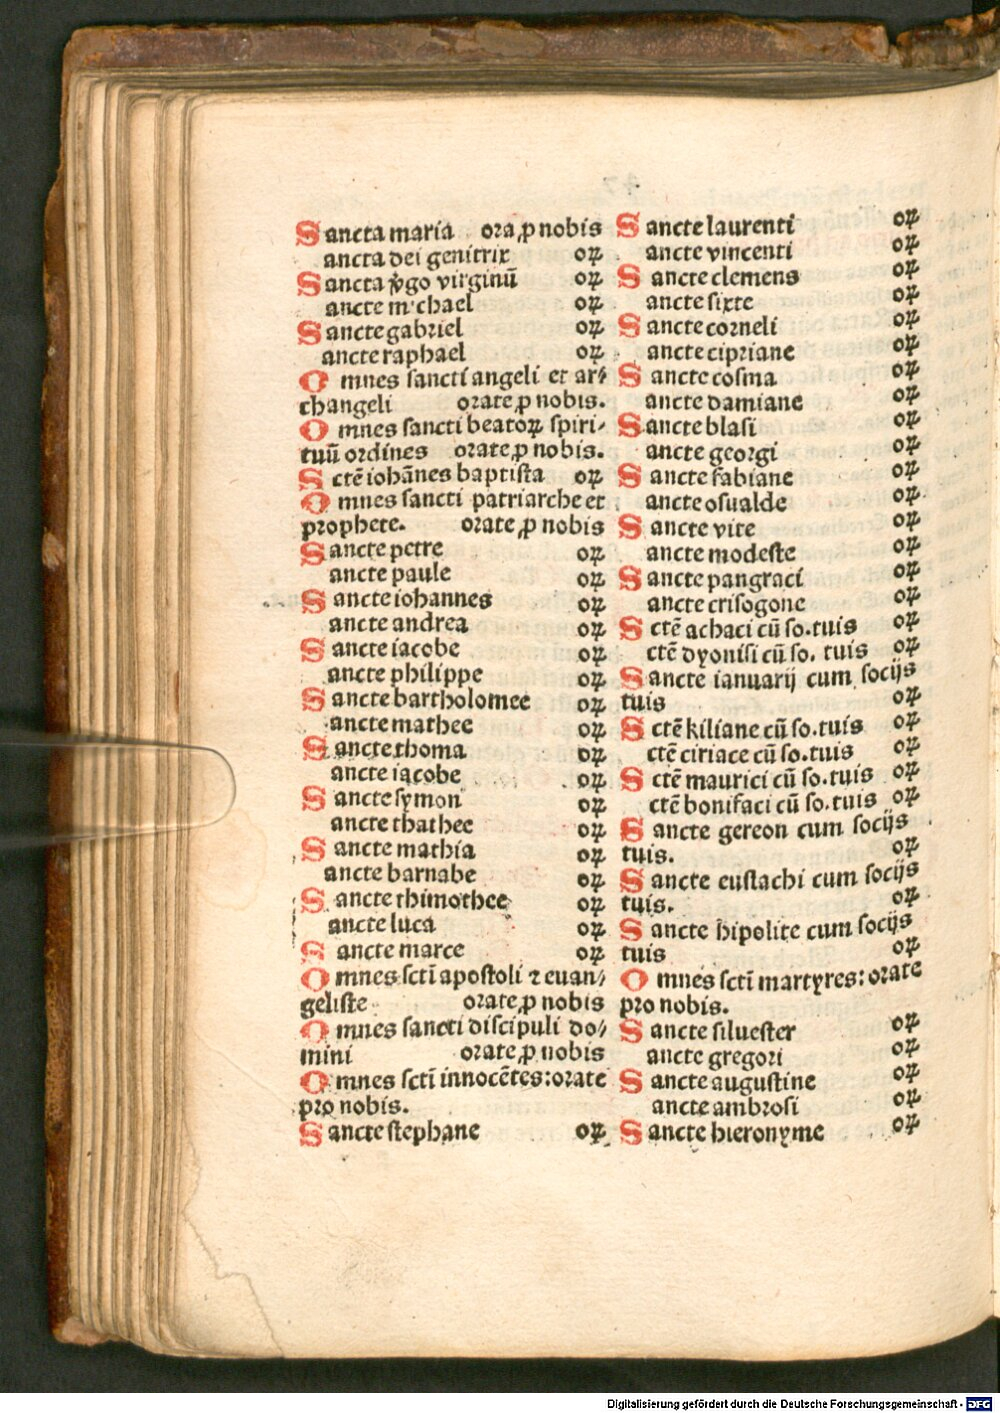 Sancta maria ora ꝓ nobis
ancta dei genitrix oꝝ
Sancta v̾go virginū oꝝ
ancte m'chael oꝝ
Sancte gabriel oꝝ
ancte raphael oꝝ
Omnes sancti angeli et ar⸗
changeli orate ꝓ nobis.
Omnes sancti beatoꝝ spiri⸗
tuū ordines orate ꝓ nobis.
Sctē iohānes baptista oꝝ
Omnes sancti patriarche et
prophete. orate ꝓ nobis
Sancte petre oꝝ
ancte paule oꝝ
Sancte iohannes oꝝ
ancte andrea oꝝ
Sancte iacobe oꝝ
ancte philippe oꝝ
Sancte bartholomee oꝝ
ancte mathee oꝝ
Sancte thoma oꝝ
ancte iacobe oꝝ
Sancte symon oꝝ
ancte thathee oꝝ
Sancte mathia oꝝ
ancte barnabe oꝝ
Sancte thimothee oꝝ
ancte luca oꝝ
Sancte marce oꝝ
Omnes sctī apostoli ⁊ euan⸗
geliste orate ꝓ nobis
Omnes sancti discipuli do⸗
mini orate ꝓ nobis
Omnes sctī innocētes: orate
pro nobis.
Sancte stephane oꝝ
Sancte laurenti oꝝ
ancte vincenti oꝝ
Sancte clemens oꝝ
ancte sixte oꝝ
Sancte corneli oꝝ
ancte cipriane oꝝ
Sancte cosma oꝝ
ancte damiane oꝝ
Sancte blasi oꝝ
ancte georgi oꝝ
Sancte fabiane oꝝ
ancte osualde oꝝ
Sancte vite oꝝ
ancte modeste oꝝ
Sancte pangraci oꝝ
ancte crisogone oꝝ
Sctē achaci cū so. tuis oꝝ
ctē dyonisi cū so. tuis oꝝ
Sancte ianuarij cum socijs
tuis oꝝ
Sctē kiliane cū so. tuis oꝝ
ctē ciriace cū so. tuis oꝝ
Sctē maurici cū so. tuis oꝝ
ctē bonifaci cū so. tuis oꝝ
Sancte gereon cum socijs
tuis. oꝝ
Sancte eustachi cum socijs
tuis. oꝝ
Sancte hipolite cum socijs
tuis oꝝ
Omnes sctī martyres: orate
pro nobis.
Sancte siluester oꝝ
ancte gregori oꝝ
Sancte augustine oꝝ
ancte ambrosi oꝝ
Sancte hieronyme oꝝ
Digitalisierung gefördert durch die Deutsche Forschungsgemeinschaft - DFG